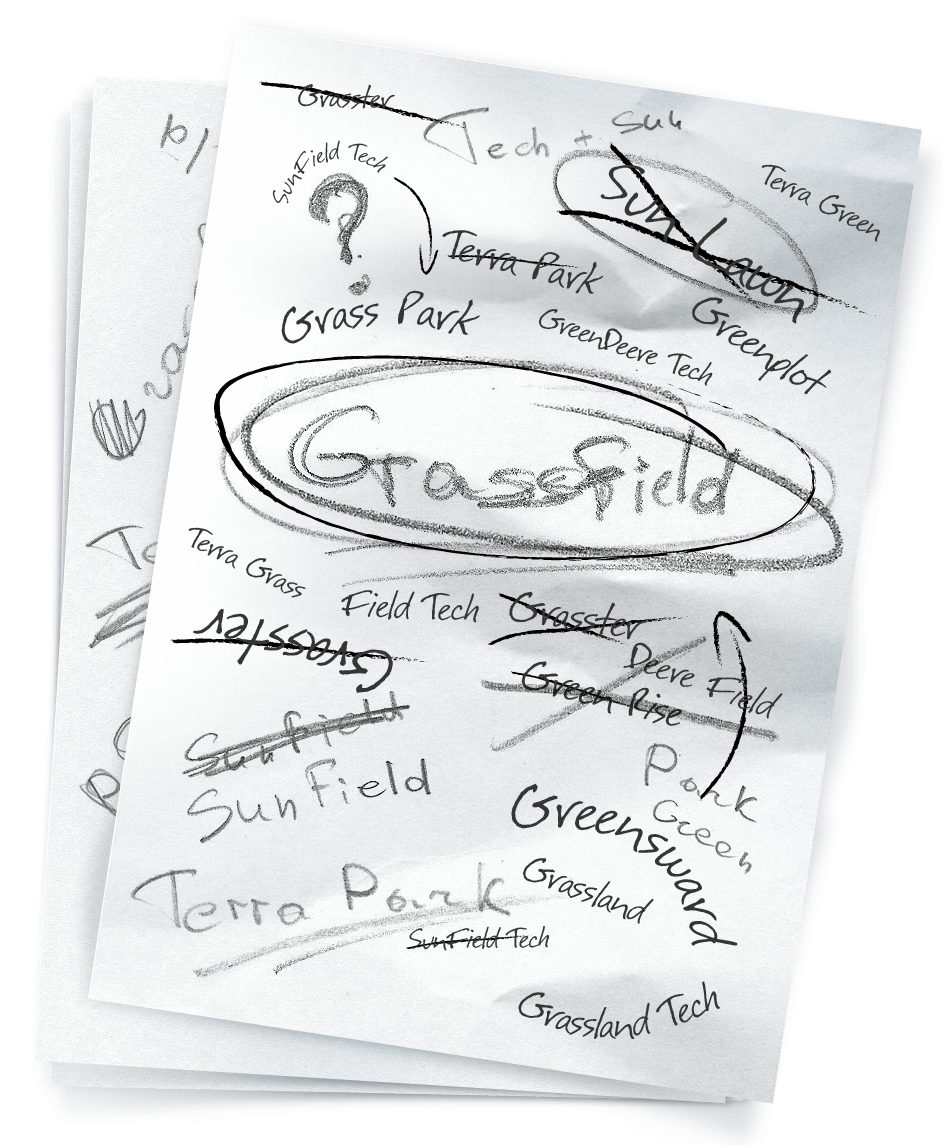 Grasster
Tech + Sun
SunField Tech
?
Sun Lawn
Terra Green
Terra Park
Grass Park
GreenDeere Tech
Greenplot
Grassfield
Terra Grass
Field Tech
Grasster
Grasster
Deere Field
Green Rise
SunField
SunField
Park
Green
Greensward
Terra Park
Grassland
SunField Tech
Grassland Tech